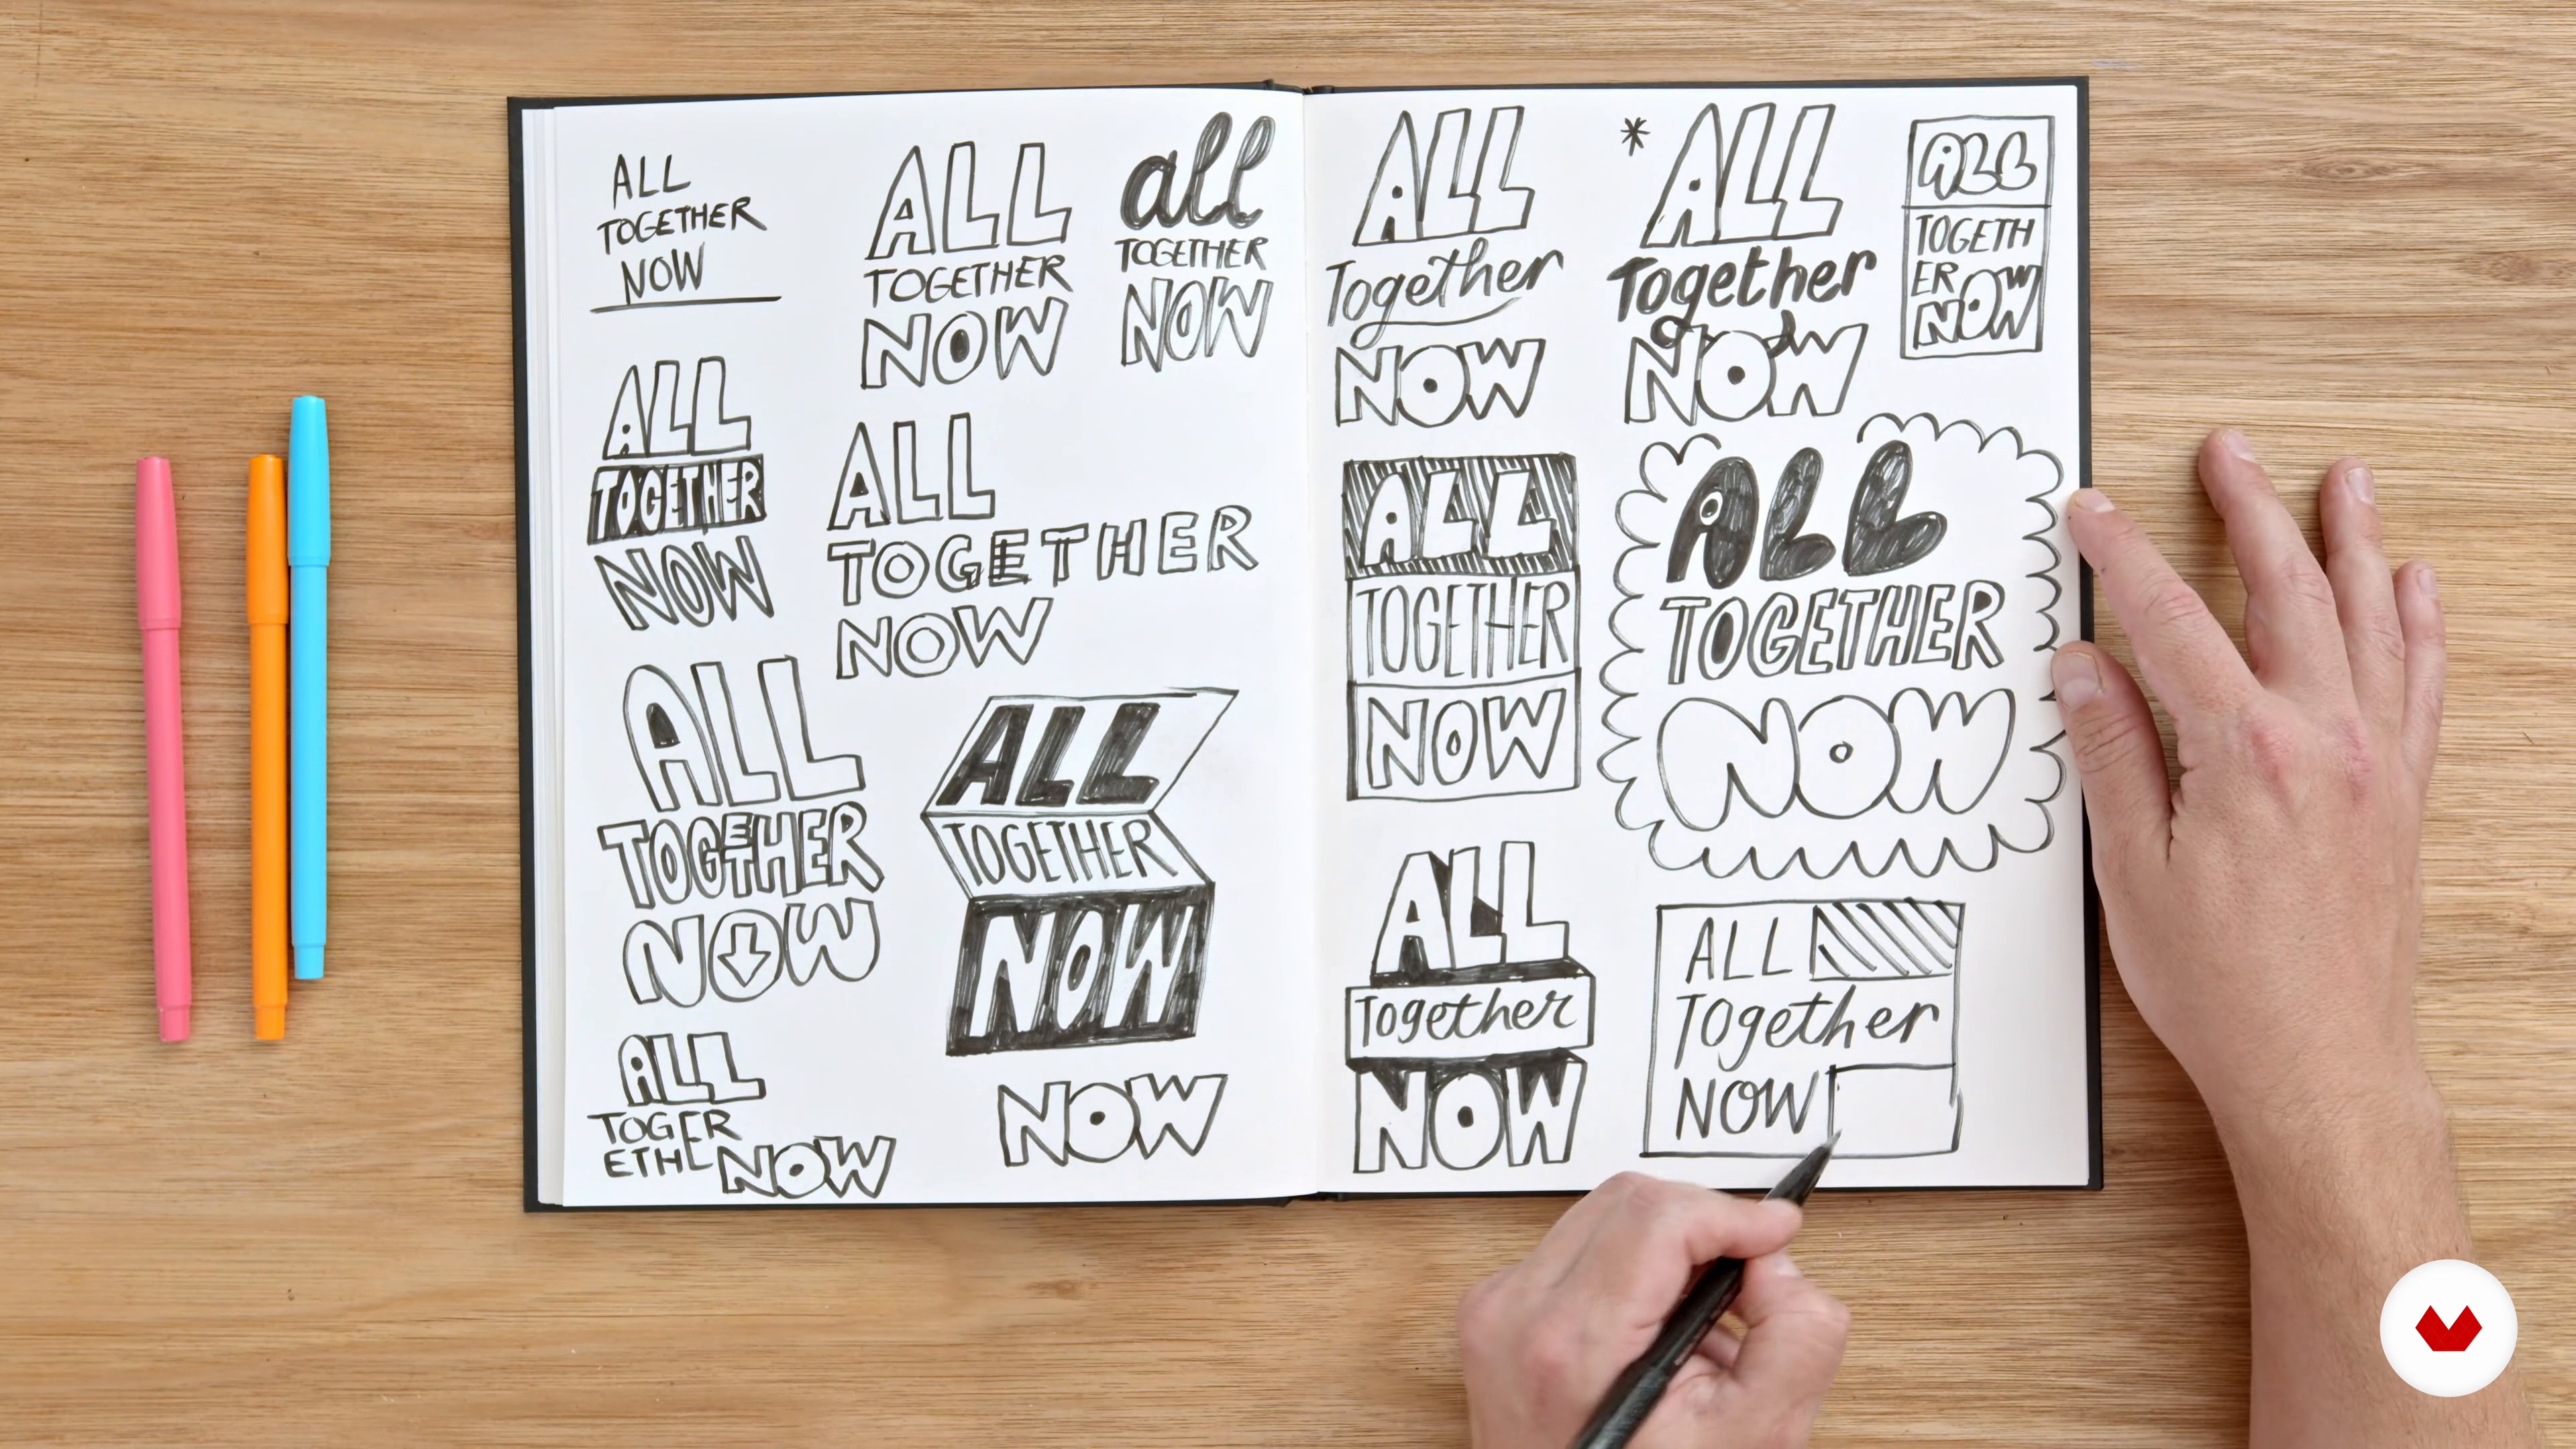 ALL
TOGETHER
NOW
ALL
TOGETHER
NOW
all
TOGETHER
NOW
ALL
TOGETHER
NOW
ALL
TOGETHER
NOW
ALL
TOGETHER
NOW
ALL
TOGETHER
NOW
ALL
TOGER
ETHE
NOW
NOW
ALL
Together
NOW
*ALL
Together
NOW
ALL
TOGETH
ER
NOW
ALL
TOGETHER
NOW
ALL
TOGETHER
NOW
ALL
Together
NOW
ALL
Together
NOW